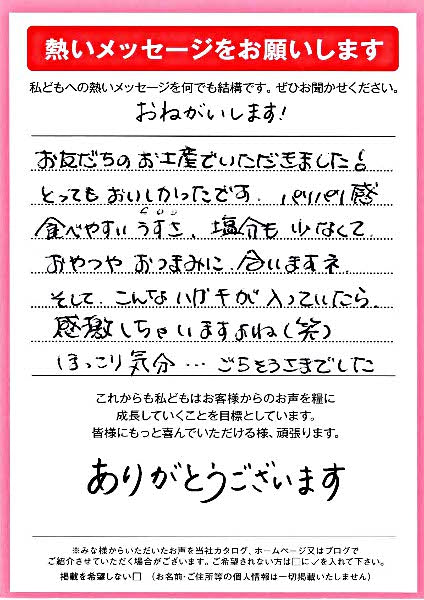 熱いメッセージをお願いします
私どもへの熱いメッセージを何でも結構です。ぜひお聞かせください。
おねがいします!
お友だちのお土産でいただきました!
とってもおいしかったです。パリパリ感
食べやすいうすさ、塩分も少なくて、
おやつやおつまみに合いますネ
そして、こんなハガキが入っていたら、
感激しちゃいますよね(笑)
ほっこり気分…ごちそうさまでした
これからも私どもはお客様からのお声を糧に
成長していくことを目標としています。
皆様にもっと喜んでいただける様、頑張ります。
ありがとうございます
※みな様からいただいたお声を当社カタログ、ホームページ又はブログで
ご紹介させていただく場合がございます。ご希望されない方は□に✓を入れて下さい。
掲載を希望しない□ (お名前・ご住所等の個人情報は一切掲載いたしません)